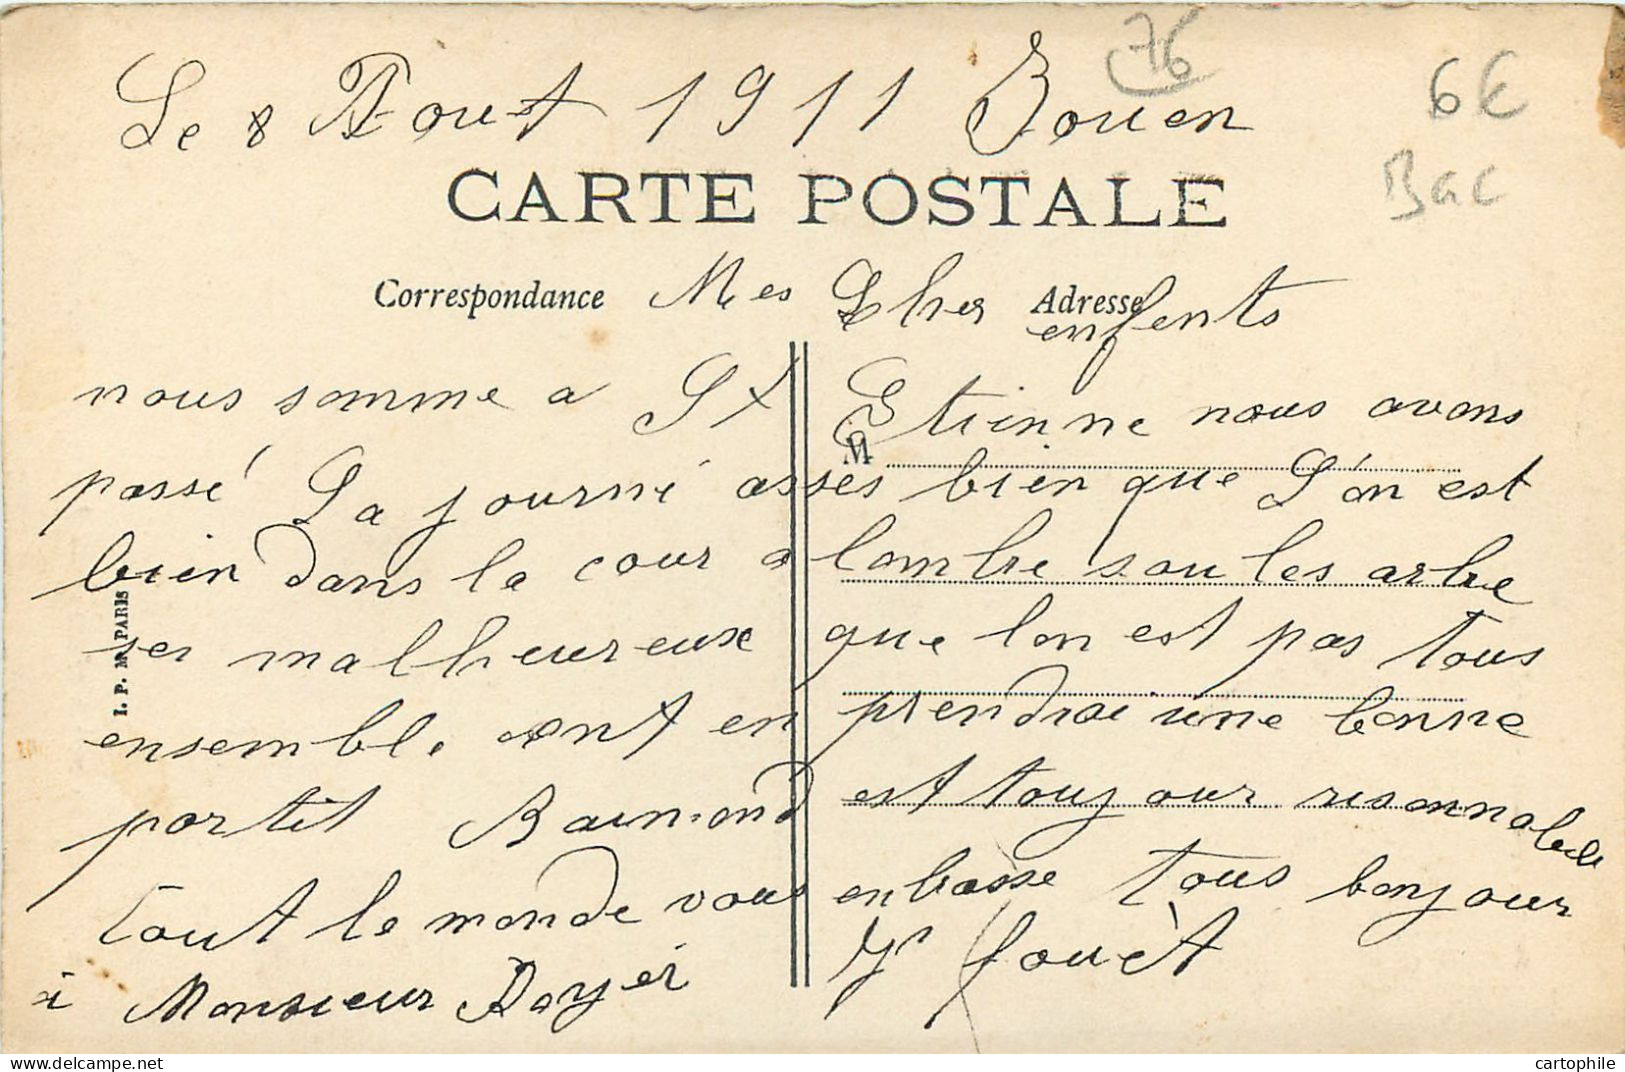 76
6€
Bac
Le 8 Aout 1911 Rouen
CARTE POSTALE
Correspondance
Adresse
Mes Cher enfents
nous somme a St Etienne nous avons
M
passé La journé asses bien que L'on est
bien dans la cour a lombre sou les arbre
ses malheureuse que lon est pas tous
ensemble ont en prendrai une bonne
partit Raimond est toujour résonnable
tout le monde vous enbrasse tous bonjour
à Monsieur Royer Fouèt
I. P. M. PARIS
cartophile